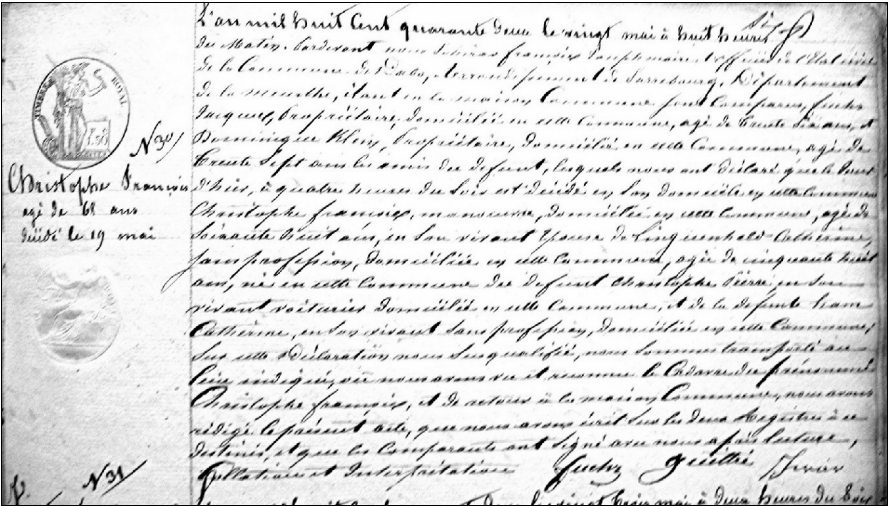 L'an mil huit Cent quarante deux le vingt mai à huit heures
du Matin. Pardevant nous françois officier de l'Etat civil
de la Commune de Dabo, Arrondissement de Sarrebourg, Département
de la Meurthe, étant en la maison Commune sont Comparus, fuchs
Jacques, Propriétaire, domicilié en cette Commune, agé de trente ans, et
Dominique Klein, Propriétaire, domicilié en cette Commune, agé de
trente Sept ans les amis du defunt, lesquels nous ont déclaré que le Jour
d'hier, à quatre heures du Soir est décédé en Son domicile en cette Commune
Christophe françois, manoeuvre, domicilié en cette Commune, agé de
Soixante huit ans, en Son vivant Epoux de Catherine,
Sans profession, domiciliée en cette Commune, agée de cinquante huit
ans, né en cette Commune du defunt Christophe Pierre en Son
vivant voiturier domicilié en cette Commune, et de la defunte
Catherine, en Son vivant Sans profession, domiciliée en cette Commune;
Sur cette Déclaration nous Susqualifié, nous Sommes transporté au
lieu indiqué, où nous avons vu et reconnu le Cadavre du prénommé
Christophe françois, et de retour à la maison Commune, nous avons
rédigé le présent acte, que nous avons écrit Sur les deux Registres à ce
destinés, et que les Comparants ont Signé avec nous après lecture,
Collation et Interprétation fuchs
TIMBRE ROYAL
N 30
Christophe François
agé de 68 ans
décédé le 19 mai
N 31
vingt trois mai à deux heures du Soir